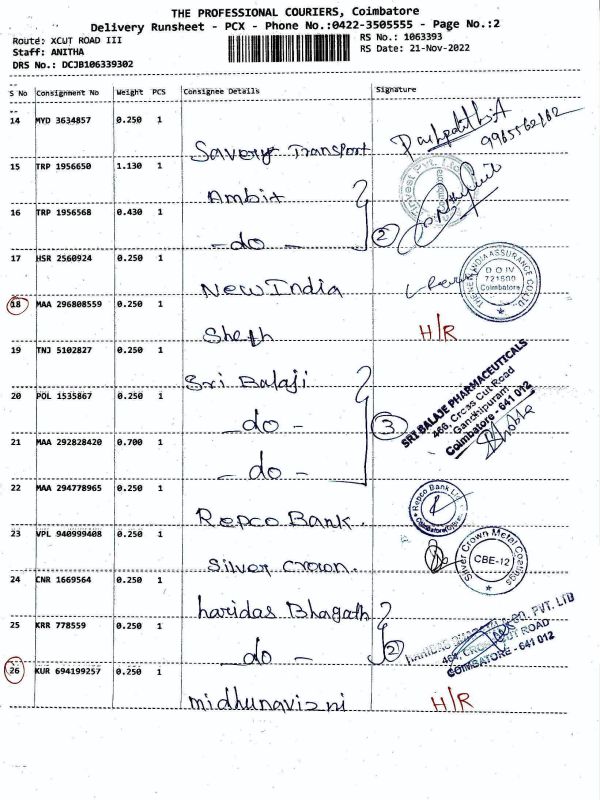 THE PROFESSIONAL COURIERS, Coimbatore
Delivery Runsheet - PCX - Phone No.:0422-3505555 - Page No.:2
Route: XCUT ROAD III
Staff: ANITHA
DRS No.: DCJB106339302
RS No.: 1063393
RS Date: 21-Nov-2022
S No Consignment No Weight PCS Consignee Details Signature
14 MYD 3634857 0.250 1
Savery Transport
9965562182
15 TRP 1956650 1.130 1
Ambit
16 TRP 1956568 0.430 1
- do -
2
17 HSR 2560924 0.250 1
New India
THE NEW INDIA ASSURANCE CO. LTD
D O IV
721600
Coimbatore
18 MAA 296808559 0.250 1
Sheth H/R
19 TNJ 5102827 0.250 1
Sri Balaji
20 POL 1535867 0.250 1
- do -
3
SRI BALAJE PHARMACEUTICALS
466, Cross Cut Road
Gandhipuram
Coimbatore - 641 012
21 MAA 292828420 0.700 1
- do -
22 MAA 294778965 0.250 1
Repco Bank
Repco Bank Ltd
23 VPL 940999408 0.250 1
Silver Crown.
Silver Crown Metal Coatings
CBE-12
24 CNR 1669564 0.250 1
haridas Bhagath
25 KRR 778559 0.250 1
- do -
2
PVT. LTD
466, CROSS CUT ROAD
COIMBATORE - 641 012
26 KUR 694199257 0.250 1
midhunavizni H/R